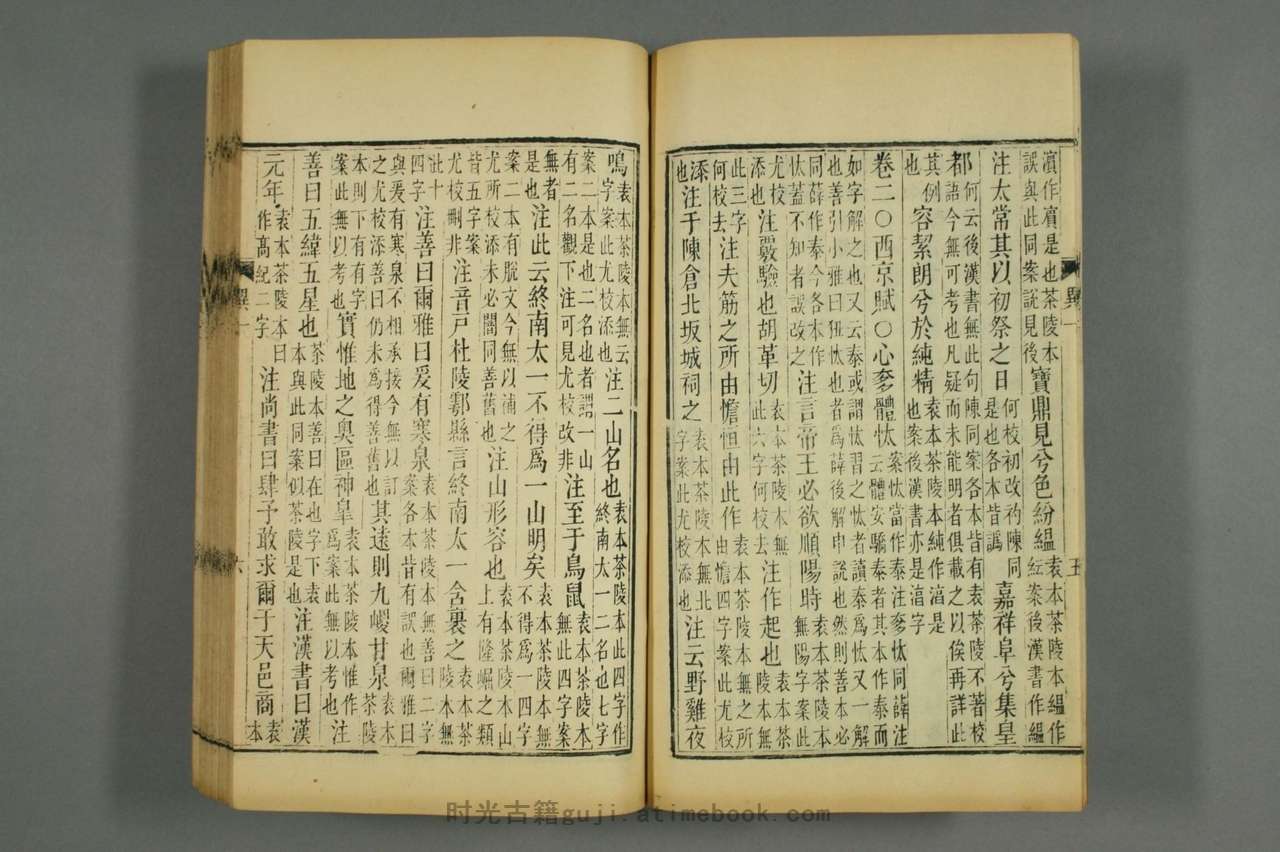 濵作㾾是也茶陵本
誤與此同案說見後
寶鼎見兮色紛縕
袁本茶陵本縕作
紜案後漢書作縕
注太常其以初祭之日
何校初改礿陳同
是也各本皆譌
嘉祥阜兮集皇
都
何云後漢書無此句陳同案各本皆有袁茶陵不著校
語今無可考也凡疑而未能明者俱載之以俟再詳此
其例
也
容絜朗兮於純精
袁本茶陵本純作湻是
也案後漢書亦是湻字
卷二〇西京賦〇心奓體忕
案忕當作泰注奓忕同薛注
云體安驕泰者其本作泰而
如字解之也又云泰或謂忕習之忕者讀泰爲忕又一解
也善引小雅曰狃忕也者爲薛後解申說也然則善本必
同薛作泰今各本作
忕蓋不知者誤改之
注言帝王必欲順陽時
袁本茶陵本
無陽字案此
尤校
添也
注覈驗也胡革切
袁本茶陵本無
此六字何校去
注作起也
袁本茶
陵本無
此三字
何校去
注夫筋之所由憺恒由此作
袁本茶陵本無之所
由憺四字案此尤校
添
也
注于陳倉北坂城祠之
袁本茶陵本無北
字案此尤校添也
注云野雞夜
異一
五
鳴
袁本茶陵本無云
字案此尤校添也
注二山名也
袁本茶陵本此四字作
終南太一二名也七字
案二本是也二名也者謂一山
有二名觀下注可見尤校改非
注至于鳥鼠
袁本茶陵本
無此四字案
無者
是也
注此云終南太一不得爲一山明矣
袁本茶陵本無
不得爲一四字
案二本有脫文今無以補之
尤所校添未必闇同善舊也
注山形容也
袁本茶陵本山
上有隆崛之類
皆五字案
尤校刪非
注音戸杜陵鄠縣言終南太一含裹之
袁本茶
陵本無
此十
四字
注善曰爾雅曰爰有寒泉
袁本茶陵本無善曰二字
案各本皆有誤也爾雅曰
與爰有寒泉不相承接今無以訂
之尤校添善曰仍未爲得善舊也
其遠則九嵕甘泉
袁本
茶陵
本則下有有字
案此無以考也
寔惟地之奥區神皐
袁本茶陵本惟作
爲案此無以考也
注
善曰五緯五星也
茶陵本善曰在也字下袁
本與此同案似茶陵是也
注漢書曰漢
元年
袁本茶陵本曰
作高紀二字
注尚書曰肆予敢求爾于天邑商
袁
本
異一
六
时光古籍guji.atimebook.com